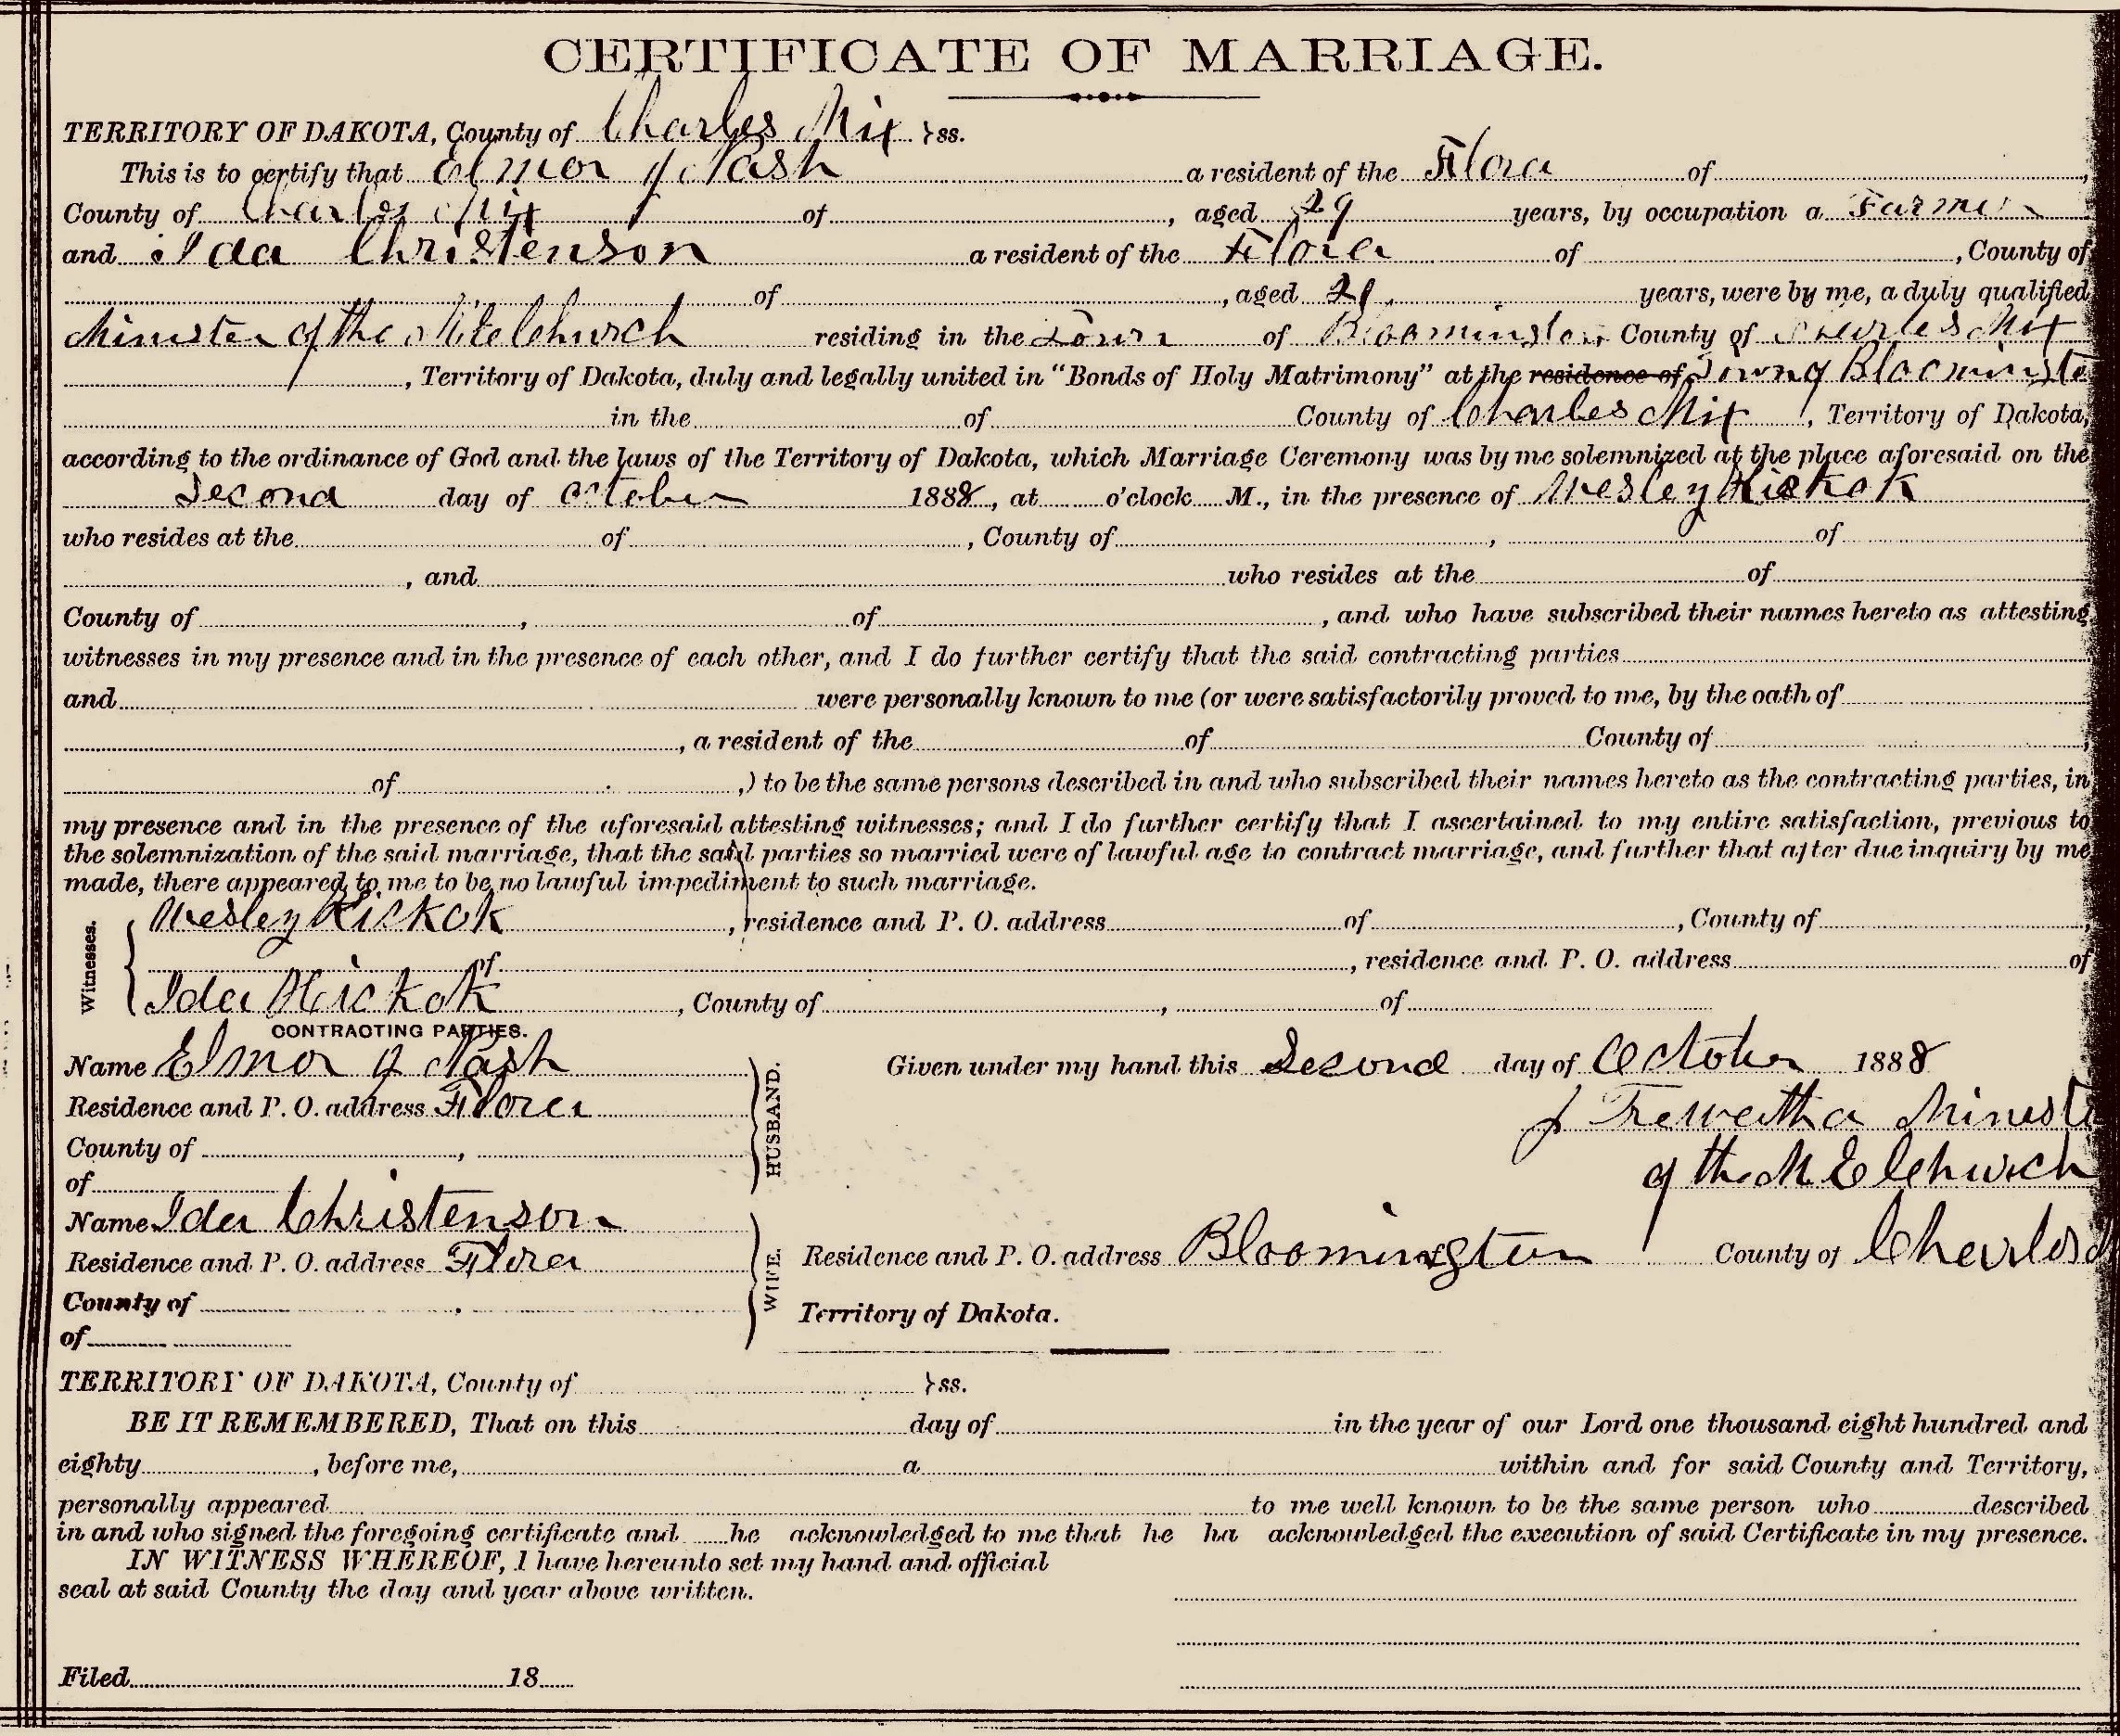 CERTIFICATE OF MARRIAGE.
TERRITORY OF DAKOTA, County of Charles Mix }ss.
This is to certify that Elmor J. Nash a resident of the Flora of ,
County of Charles Mix of , aged 29 years, by occupation a Farmer
and Ida Christenson a resident of the Flora of , County of
of , aged years, were by me, a duly qualified
Minister of the M E Church residing in the Town of Bloomington County of Charles Mix
, Territory of Dakota, duly and legally united in "Bonds of Holy Matrimony" at the residence of Town of Bloomingto
in the of County of Charles Mix , Territory of Dakota,
according to the ordinance of God and the laws of the Territory of Dakota, which Marriage Ceremony was by me solemnized at the place aforesaid on the
Second day of October 1888, at o'clock M., in the presence of Wesley Hickok
who resides at the of , County of , of
, and who resides at the of
County of , of , and who have subscribed their names hereto as attesting
witnesses in my presence and in the presence of each other, and I do further certify that the said contracting parties
and were personally known to me (or were satisfactorily proved to me, by the oath of
, a resident of the of County of ,
of ,) to be the same persons described in and who subscribed their names hereto as the contracting parties, in
my presence and in the presence of the aforesaid attesting witnesses; and I do further certify that I ascertained to my entire satisfaction, previous to
the solemnization of the said marriage, that the said parties so married were of lawful age to contract marriage, and further that after due inquiry by me
made, there appeared to me to be no lawful impediment to such marriage.
Witnesses.
Wesley Hickok , residence and P. O. address of , County of ,
of , residence and P. O. address of
Ida Hickok , County of , of
CONTRACTING PARTIES.
Name Elmor J Nash
Residence and P. O. address Flora
County of ,
of
HUSBAND.
Given under my hand this Second day of October 1888
J Trewartha Ministe
of the M E Church
Name Ida Christenson
Residence and P. O. address Flora
County of
of
WIFE.
Residence and P. O. address Bloomington County of Charles
Territory of Dakota.
TERRITORY OF DAKOTA, County of }ss.
BE IT REMEMBERED, That on this day of in the year of our Lord one thousand eight hundred and
eighty , before me, a within and for said County and Territory,
personally appeared to me well known to be the same person who described
in and who signed the foregoing certificate and he acknowledged to me that he ha acknowledged the execution of said Certificate in my presence.
IN WITNESS WHEREOF, I have hereunto set my hand and official
seal at said County the day and year above written.
Filed 18